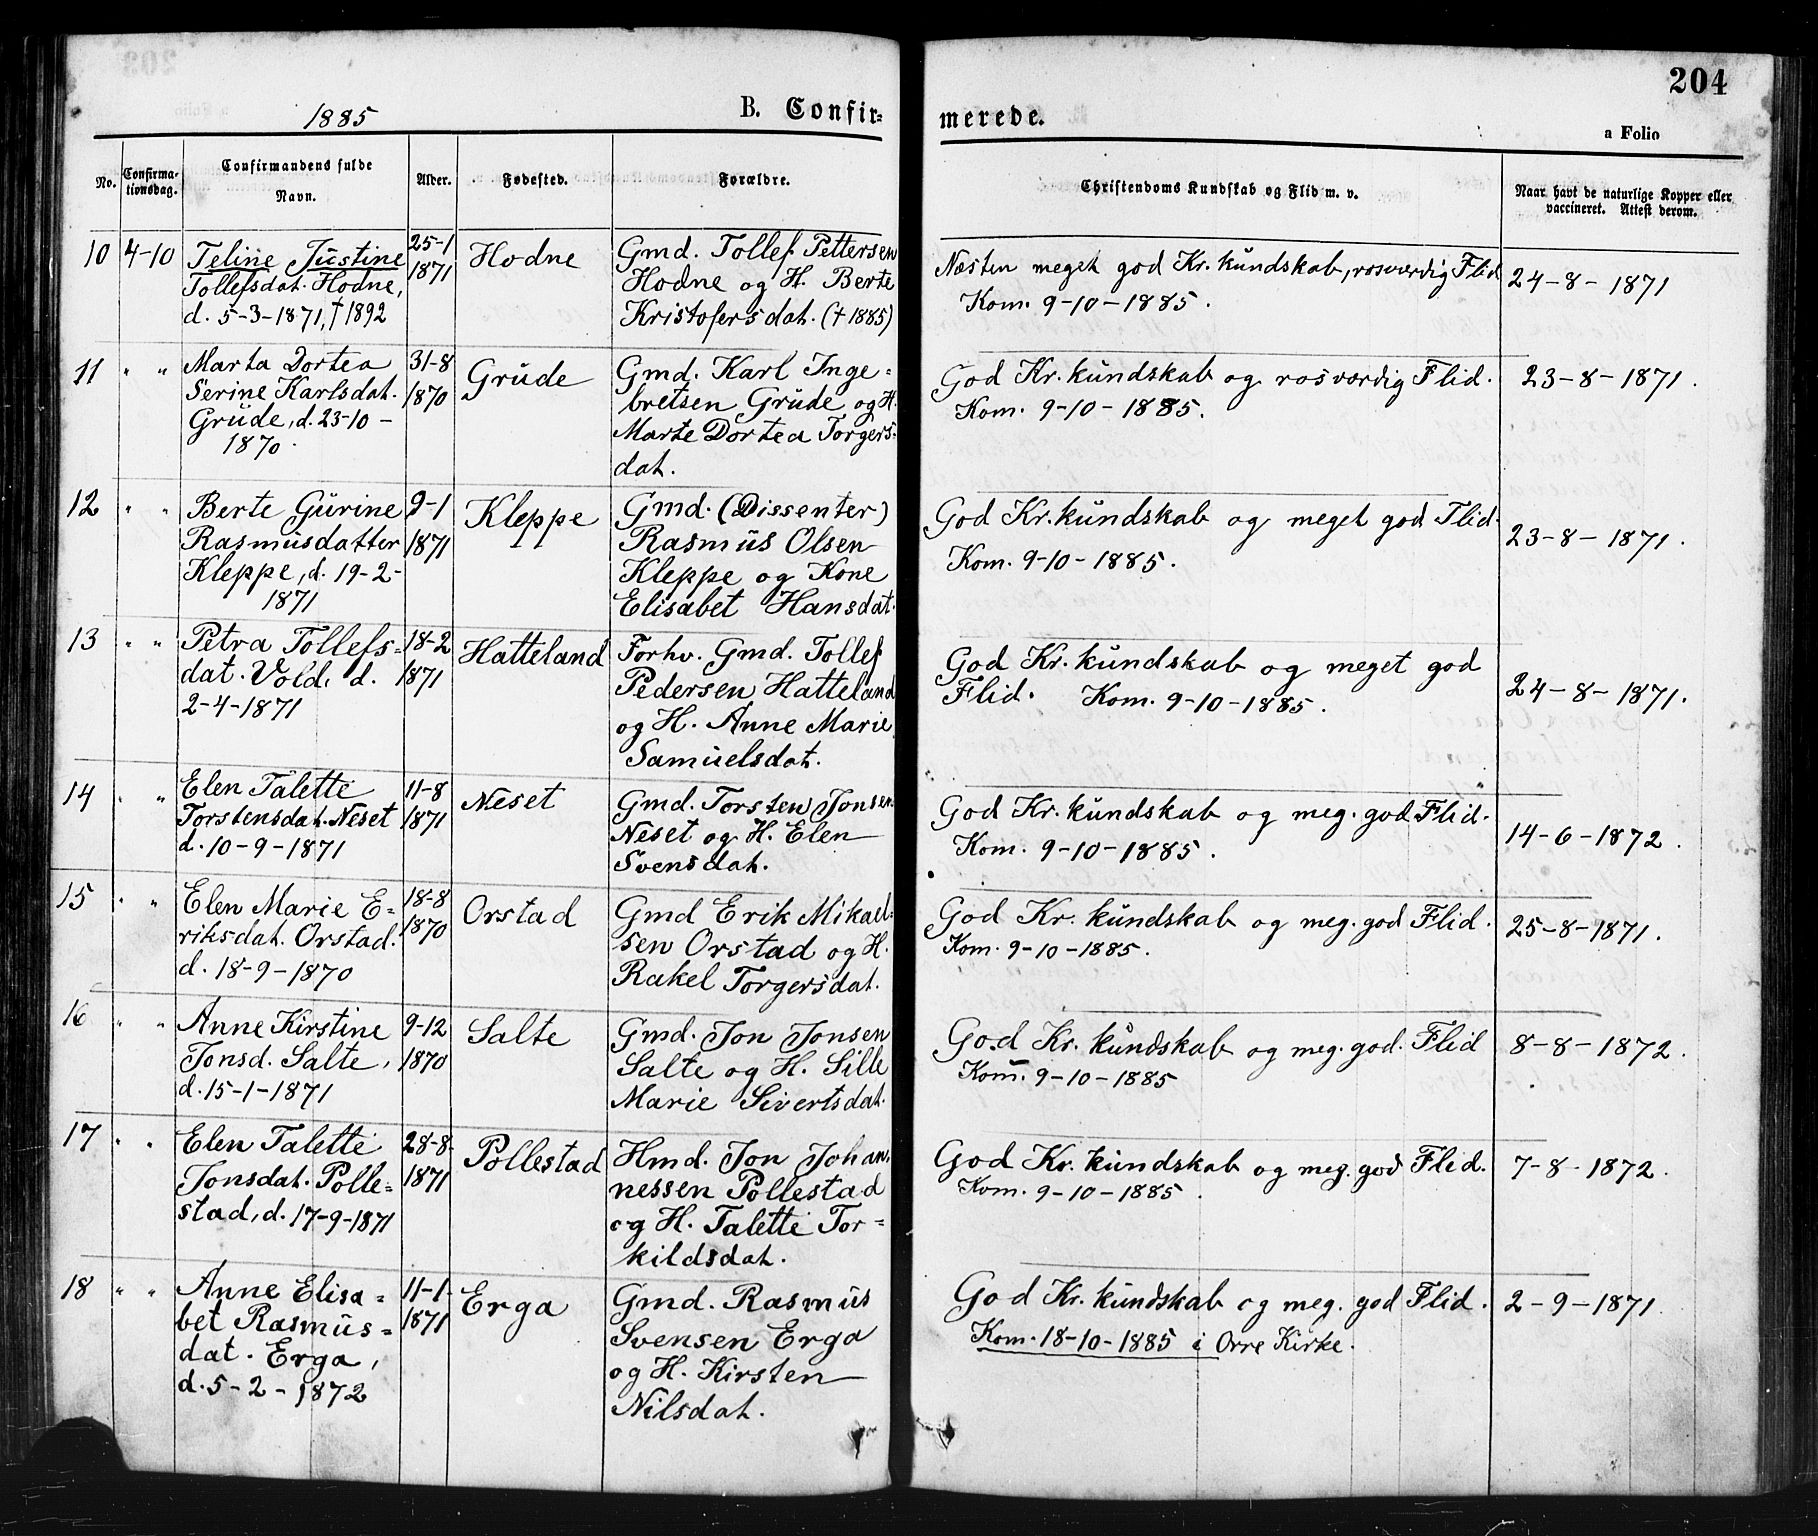 204
1885
B. Confir-
merede.
a Folio
No.
Confirma-
tionsdag.
Confirmandens fulde
Navn.
Alder.
Fødested.
Forældre.
Christendoms Kundskab og Flid m. v.
Naar havt de naturlige Kopper eller
vaccineret. Attest derom.
10 4-10
Teline Justine
Tollefsdat. Hodne,
d. 5-3-1871, † 1892
25-1
1871
Hodne
Gmd. Tollef Pettersen
Hodne og H. Berte
Kristofersdat. († 1885)
Næsten meget god Kr. kundskab, rosværdig Flid
Kom. 9-10-1885.
24-8-1871
11 " "
Marta Dortea
Serine Karlsdat.
Grude, d. 23-10-
1870.
31-8
1870
Grude
Gmd. Karl Inge-
bretsen Grude og H.
Marte Dortea Torgers-
dat.
God Kr. kundskab og rosværdig Flid.
Kom. 9-10-1885.
23-8-1871.
12 " "
Berte Gurine
Rasmusdatter
Kleppe, d. 19-2-
1871
9-1
1871
Kleppe
Gmd. (Dissenter)
Rasmus Olsen
Kleppe og Kone
Elisabet Hansdat.
God Kr. kundskab og meget god Flid.
Kom. 9-10-1885.
23-8-1871.
13 " "
Petra Tollefs-
dat. Vold, d.
2-4-1871
18-2
1871
Hatteland
Forhv. Gmd. Tollef
Pedersen Hatteland
og H. Anne Marie
Samuelsdat.
God Kr. kundskab og meget god
Flid. Kom. 9-10-1885.
24-8-1871.
14 " "
Elen Talette
Torstensdat. Neset
d. 10-9-1871
11-8
1871
Neset
Gmd. Torsten Jonsen
Neset og H. Elen
Svensdat.
God Kr. kundskab og meg. god Flid.
Kom. 9-10-1885.
14-6-1872.
15 " "
Elen Marie E-
riksdat. Orstad.
d. 18-9-1870
18-8
1870
Orstad
Gmd Erik Mikael-
sen Orstad og H.
Rakel Torgersdat.
God Kr. kundskab og meg. god Flid.
Kom. 9-10-1885.
25-8-1871.
16 " "
Anne Kirstine
Jonsd. Salte,
d. 15-1-1871
9-12
1870
Salte
Gmd. Jon Jonsen
Salte og H. Sille
Marie Sivertsdat.
God Kr. kundskab og meg. god. Flid
Kom. 9-10-1885
8-8-1872.
17 " "
Elen Talette
Jonsdat. Polle-
stad, d. 17-9-1871
28-8-
1871
Pollestad
Hmd. Jon Johan-
nessen Pollestad
og H. Talette Tor-
kildsdat.
God Kr. kundskab og meg. god Flid.
Kom. 9-10-1885.
7-8-1872.
18 " "
Anne Elisa-
bet Rasmus-
dat. Erga,
d. 5-2-1872
11-1-
1871
Erga
Gmd. Rasmus
Svensen Erga
og H. Kirsten
Nilsdat.
God Kr. kundskab og meg. god Flid.
Kom. 18-10-1885 i Orre Kirke.
2-9-1871.